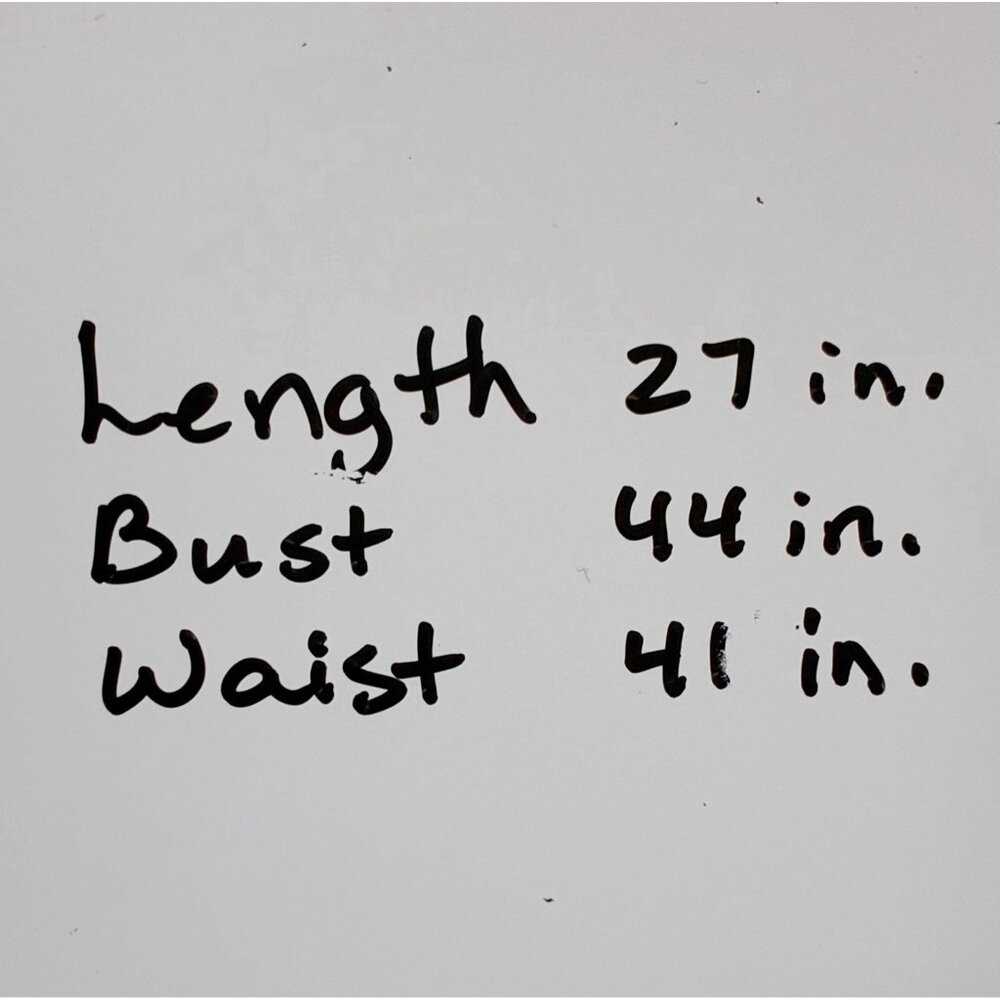 Length 27 in.
Bust 44 in.
Waist 41 in.